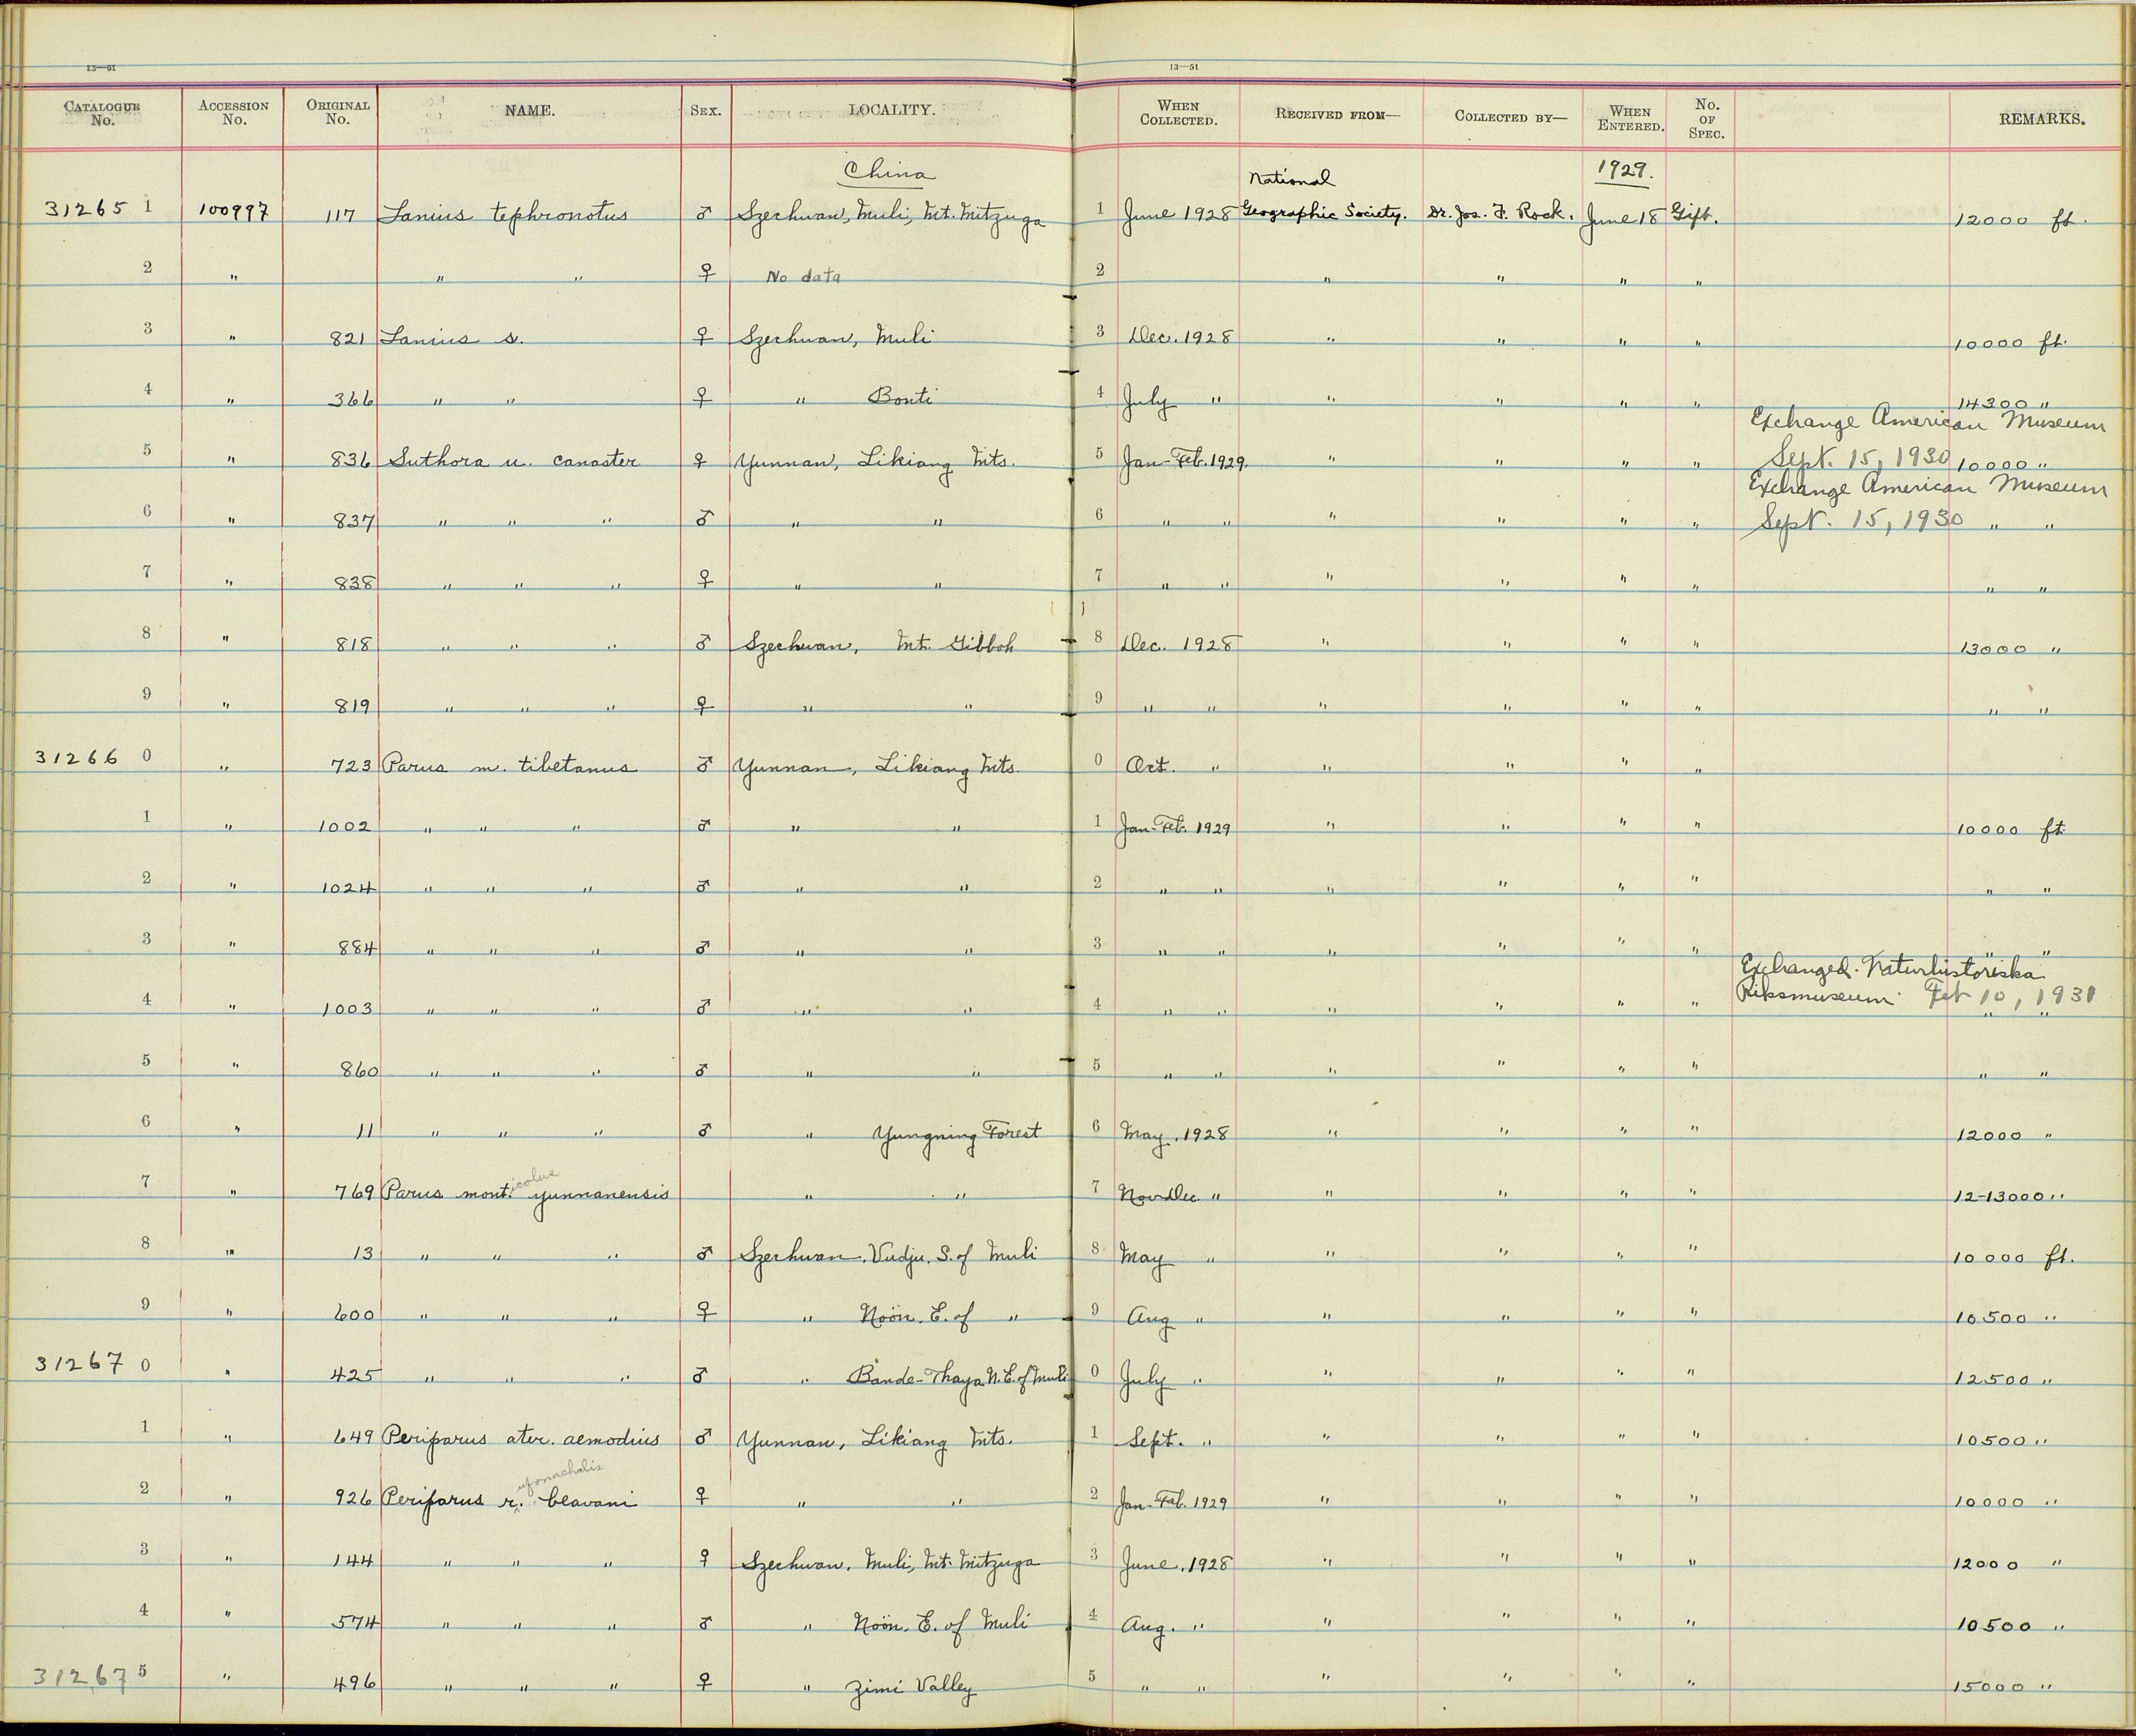 13—51 13—51
CATALOGUE No. ACCESSION No. ORIGINAL No. NAME. SEX. LOCALITY. WHEN COLLECTED. RECEIVED FROM— COLLECTED BY— WHEN ENTERED. No. OF SPEC. REMARKS.
China National 1929.
31265 1 100997 117 Lanius tephronotus ♂ Szechwan, Muli, Mt. Mitzuga 1 June 1928 Geographic Society. Dr. Jos. F. Rock. June 18 Gift. 12000 ft.
2 " " " ♀ No data 2 " " " "
3 " 821 Lanius s. ♀ Szechwan, Muli 3 Dec. 1928 " " " " 10000 ft.
4 " 366 " " ♀ " Bonti 4 July " " " " " 14300 "
Exchange American Museum
5 " 836 Suthora u. canaster ♀ Yunnan, Likiang Mts. 5 Jan-Feb. 1929. " " " " Sept. 15, 1930 10000 "
Exchange American Museum
6 " 837 " " " ♂ " " 6 " " " " " " Sept. 15, 1930 " "
7 " 838 " " " ♀ " " 7 " " " " " " " "
8 " 818 " " " ♂ Szechwan, Mt. Gibboh 8 Dec. 1928 " " " " 13000 "
9 " 819 " " " ♀ " " 9 " " " " " " " "
31266 0 " 723 Parus m. tibetanus ♂ Yunnan, Likiang Mts. 0 Oct. " " " " "
1 " 1002 " " " ♂ " " 1 Jan-Feb. 1929 " " " " 10000 ft.
2 " 1024 " " " ♂ " " 2 " " " " " " " "
3 " 884 " " " ♂ " " 3 " " " " " " " "
Exchanged. Naturhistoriska
4 " 1003 " " " ♂ " " 4 " " " " " " Riksmuseum. Feb 10, 1931 " "
5 " 860 " " " ♂ " " 5 " " " " " " " "
6 " 11 " " " ♂ " Yungning Forest 6 May, 1928 " " " " 12000 "
icolus
7 " 769 Parus mont. yunnanensis " " 7 Nov-Dec " " " " " 12-13000 "
8 " 13 " " " ♂ Szechwan, Vudju, S. of Muli 8 May " " " " " 10000 ft.
9 " 600 " " " ♀ " Noön. E. of " 9 Aug " " " " " 10500 "
31267 0 " 425 " " " ♂ " Bande-Thaya N.E. of Muli 0 July " " " " " 12500 "
1 " 649 Periparus ater. aemodius ♂ Yunnan, Likiang Mts. 1 Sept. " " " " " 10500 "
2 " 926 Periparus r. beavani ♀ " " 2 Jan-Feb. 1929 " " " " 10000 "
3 " 144 " " " ♀ Szechwan, Muli, Mt. Mitzuga 3 June, 1928 " " " " 12000 "
4 " 574 " " " ♂ " Noön. E. of Muli 4 Aug. " " " " " 10500 "
31267 5 " 496 " " " ♀ " Zimi Valley 5 " " " " " " 15000 "